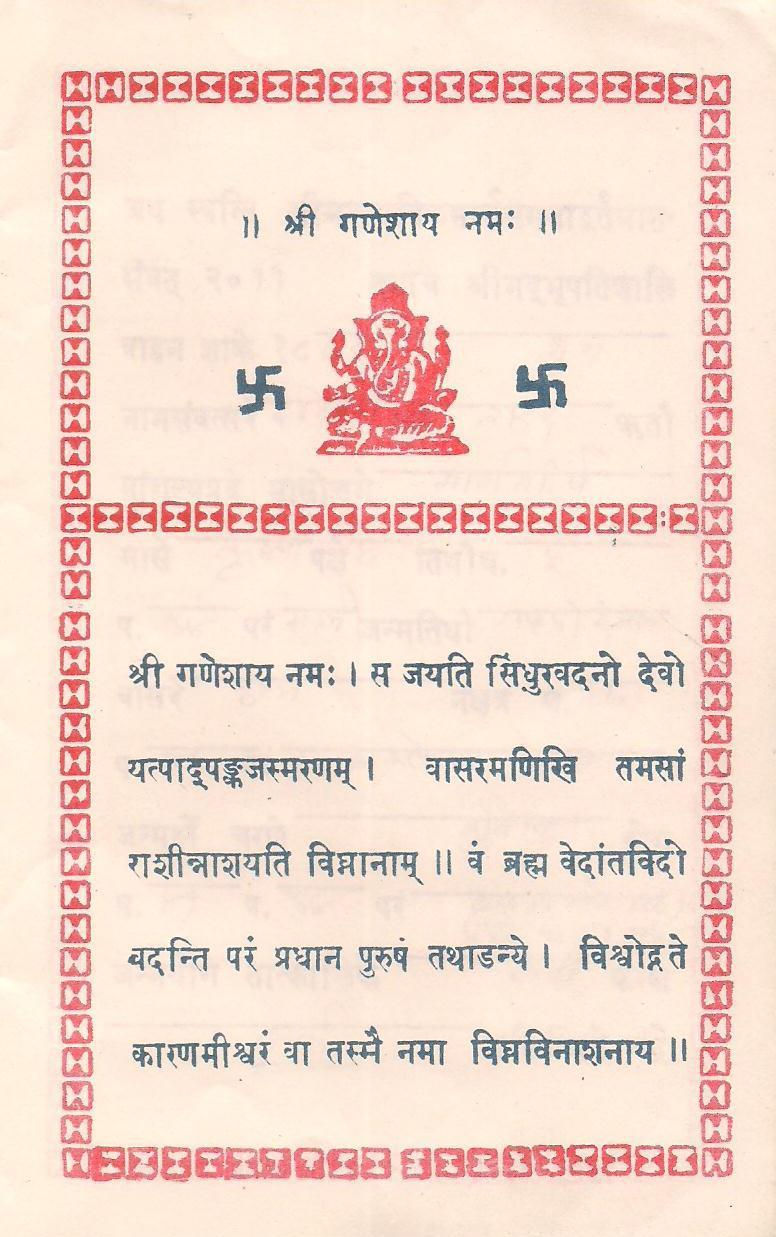 ॥ श्री गणेशाय नमः ॥
श्री गणेशाय नमः । स जयति सिंधुरवदनो देवो
यत्पाद्पङ्कजस्मरणम् । वासरमणिखि तमसां
राशीन्नाशयति विघ्नानाम् ॥ वं ब्रह्म वेदांतविदो
वदन्ति परं प्रधान पुरुषं तथाडन्ये । विश्वोद्गते
कारणमीश्वरं वा तस्मै नमा विघ्नविनाशनाय ॥